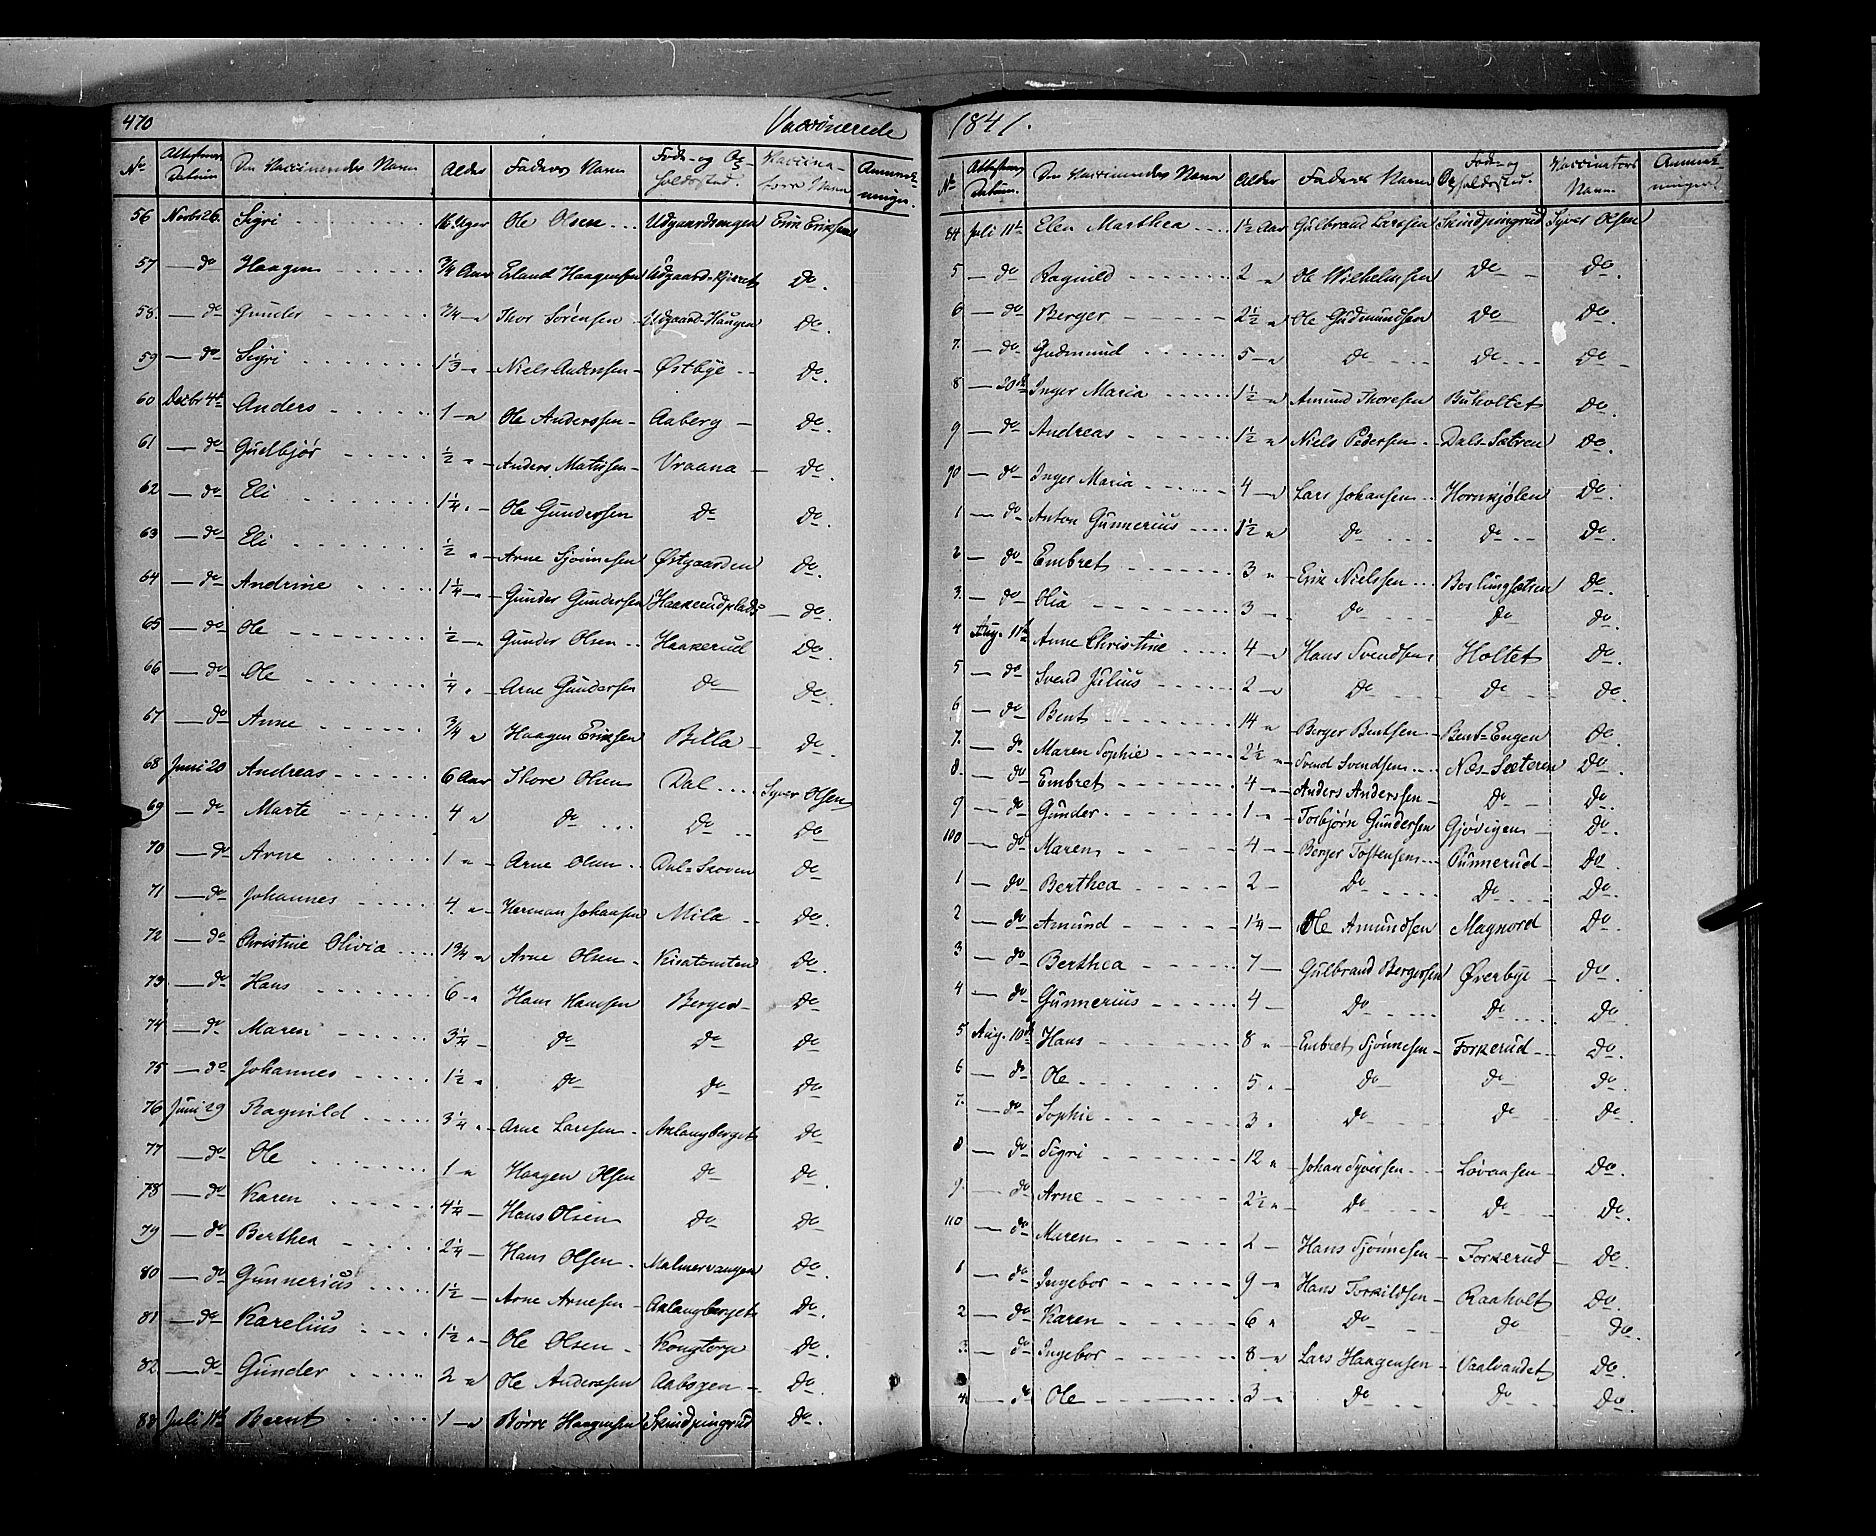 470 Vaccinerede
No Attestens Datum Den Vaccineredes Navn Alder Faders Navn Føde- og Opholdssted. Vaccinators Navn Anmærkninger.
56 Novbr 26. Sigri 16 Uger Ole Olsen Udgaardsengen Erik Eriksen
57 — do Haagen 3/4 Aar Erland Haagensen Udgaard-kjernet Do.
58. — do Gunder 3/4 — " Thor Sørensen Udgaard-Haugen Do.
59 — do Sigri 1 1/3 - " Niels Anderssen Østbye Do.
60 Decbr 4de Anders 1 — " Ole Anderssen Aaberg Do.
61 — do Gudbjør 1/2 " Anders Matissen Vraana Do.
62 — do Eli 1 1/4 " Ole Gunderssen Do Do.
63 — do Eli 1/2 " Arne Sjønnesen Østgaarden Do.
64 — do Andrine 1 1/4 — " Gunder Gundersen Haakerudplads Do.
65 — do Ole 1/2 — " Gunder Olsen Haakerud Do.
66 — do Ole 1/4 " Arne Gundersen Do Do.
67 — do Anne 3/4 " Haagen Eriksen Billa Do.
68 Juni 20 Andreas 6 Aar Thore Olsen Dal Syver Olsen
69 — do Marte 4 " Do Do Do
70 — do Arne 1 " Arne Olsen Dal-Skoven Do
71 — do Johannes 4 " Herman Johansen Mila Do.
72 — do Christine Olivia 1 3/4 " Arne Olsen Do.
73 — do Hans 6 " Hans Hansen Berger Do
74 — do Maren 3 1/4 — Do Do Do
75 — do Johannes 1 1/2 " Do Do Do
76 Juni 29 Ragnild 3 1/4 " Arne Larssen Aslangberget Do
77 — do Ole 1 " Haagen Olsen Do Do.
78 — do Karen 4 1/4 — Hans Olsen Do Do
79 — do Berthea 2 1/4 — Hans Olsen Malmervangen Do.
80 — do Gunnerius 1 1/2 — Arne Arnesen Aslangberget Do.
81 — do Karelius 1 1/2 " Ole Olsen Kongtorp Do.
82 — do Gunder 2 " Ole Anderssen Aabogen Do.
83 Juli 11te Bernt 1 — " Børre Haagensen Skindpungrud Do.
1841.
No Attestens Datum. Den Vaccineredes Navn Alder Faders Navn Føde- og Opholdssted. Vaccinators Navn Anmærkninger
84 Juli 11te Elen Marthea 1 1/2 Aar Gulbrand Larssen Skindpungrud Syver Olsen
5 — do Ragnild 2 " Ole Wilhelmsen Do Do.
6 — do Berger 2 1/2 " Ole Gudmundsen Do Do.
7. — do Gudmund 5 — " Do Do Do
8 — 20de Inger Maria 1 1/2 " Amund Thoresen Buholtet Do.
9 — do Andreas 1 1/2 " Niels Pedersen Dals-Sætren Do.
90 — do Inger Maria 4 — " Lars Johansen Hornkjølen Do.
1 — do Anton Gunnerius 1 1/2 " Do Do Do.
2 — do Embret 3 " Erik Nielssen Do.
3. — do Olia 3 — Do Do do.
4 Aug. 11te Anne Christine 4 — " Hans Svendsen Holtet Do.
5 — do Svend Julius 2 — " Do Do Do.
6 — do Bent 14 " Berger Bentsen Bent-Engen Do.
7. — do Maren Sophie 2 1/2 " Svend Svendsen Næs-Sæteren Do.
8. — do Embret 4 " Anders Anderssen Do Do.
9 — do Gunder 1 " Torbjørn Gundersen Gjøvigen Do.
100 — do Maren 4 — Berger Tostensen Punnerud Do
1 — do Berthea 2 — Do Do Do.
2 — do Amund 1 1/4 — Ole Amundsen Magnord Do.
3 — do Berthea 7 — Gulbrand Bergersen Øverbye Do.
4 — do Gunnerius 4 — Do Do Do.
5 Aug. 10de Hans 8 " Embret Sjønnesen Forkerud Do.
6 — do Ole 5 " Do Do Do.
7. — do Sophie 3 " Do Do Do.
8 — do Sigri 12 " Johan Syversen Løvaasen Do.
9. — do Arne 2 1/2 " Do Do Do.
110 — do Maren 2 — Hans Sjønnesen Forkerud Do.
1 — do Ingebor 9 " Hans Torkildsen Raaholt Do.
2 — do Karen 6 " Do Do Do.
3. — do Ingebor 8 — " Lars Haagensen Vaalvandet Do
4 — do Ole 3 " Do Do Do.